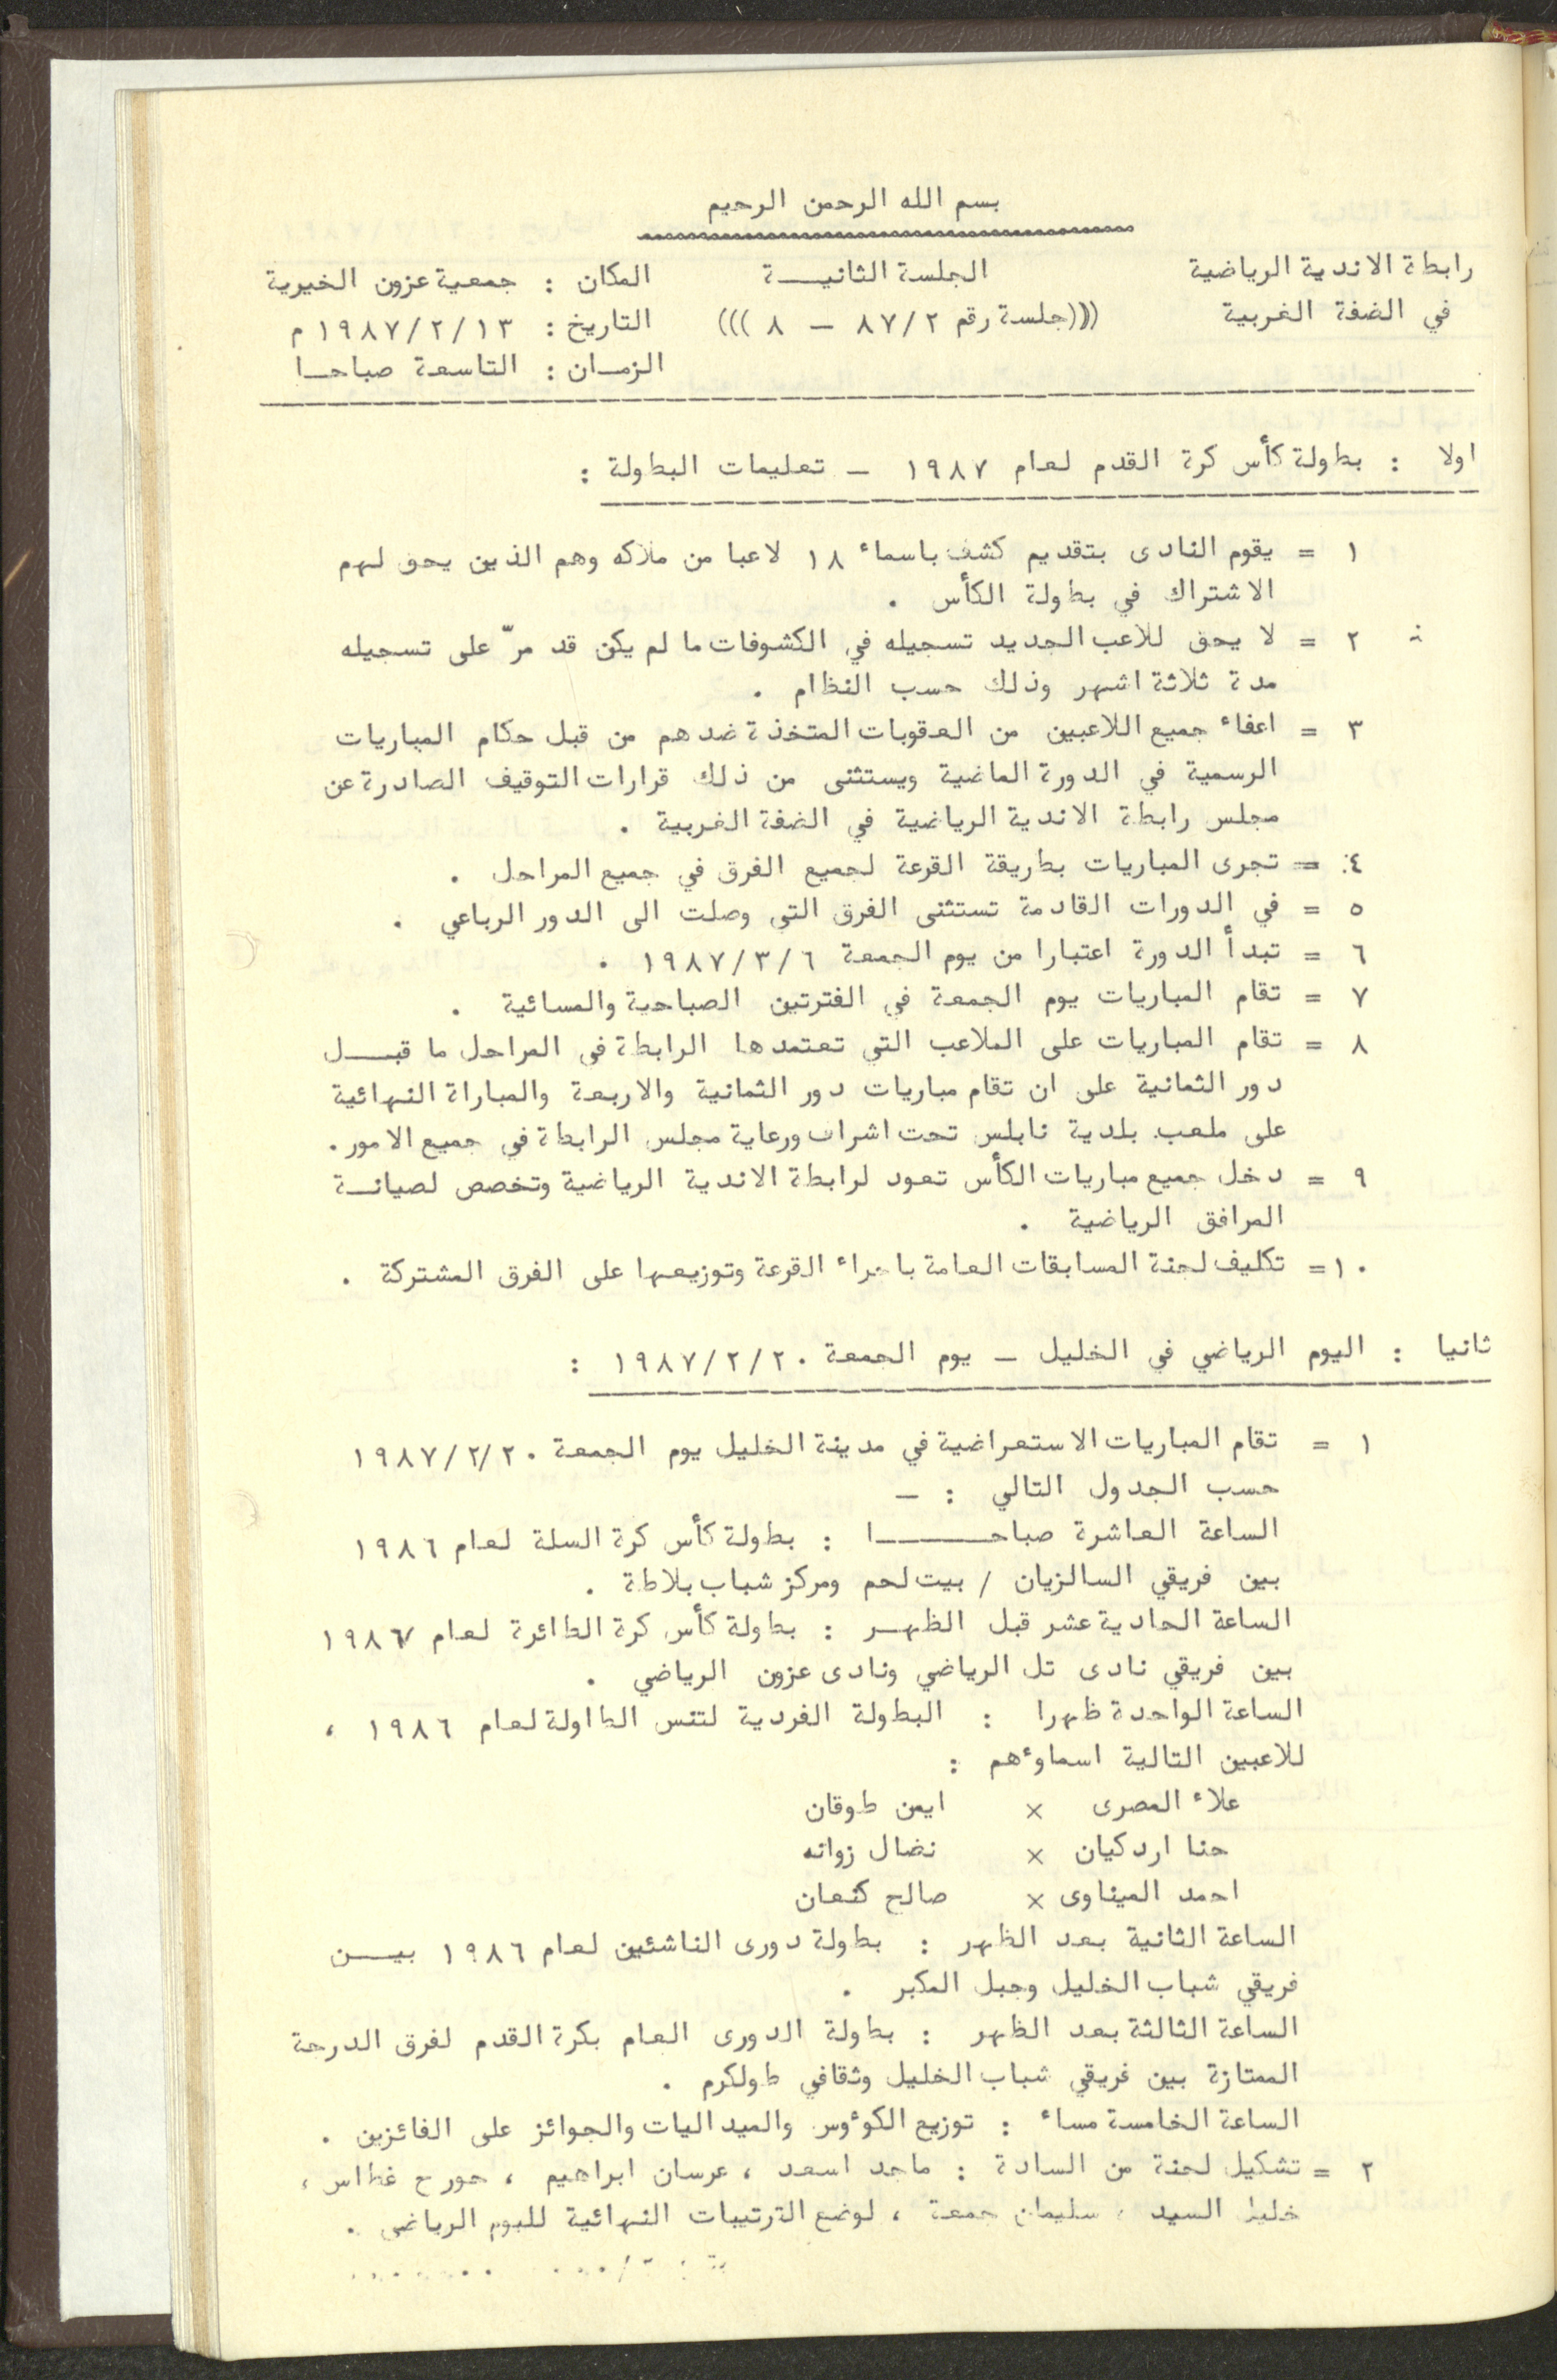 بسم الله الرحمن الرحيم
رابطة الاندية الرياضية الجلسة الثانيـــة المكان : جمعية عزون الخيرية
في الضفة الغربية (((جلسة رقم ٨٧/٢ – ٨ ))) التاريخ : ١٩٨٧/٢/١٣ م
الزمـان : التاسعة صباحـا
اولا : بطولة كأس كرة القدم لعام ١٩٨٧ – تعليمات البطولة :
١ = يقوم النادى بتقديم كشف باسماء ١٨ لاعبا من ملاكه وهم الذين يحق لهم
الاشتراك في بطولة الكأس .
٢ = لا يحق للاعب الجديد تسجيله في الكشوفات ما لم يكن قد مرّ على تسجيله
مدة ثلاثة اشهر وذلك حسب النظام .
٣ = اعفاء جميع اللاعبين من العقوبات المتخذة ضدهم من قبل حكام المباريات
الرسمية في الدورة الماضية ويستثنى من ذلك قرارات التوقيف الصادرة عن
مجلس رابطة الاندية الرياضية في الضفة الغربية .
٤ = تجرى المباريات بطريقة القرعة لجميع الفرق في جميع المراحل .
٥ = في الدورات القادمة تستثنى الفرق التي وصلت الى الدور الرباعي .
٦ = تبدأ الدورة اعتبارا من يوم الجمعة ١٩٨٧/٣/٦ .
٧ = تقام المباريات يوم الجمعة في الفترتين الصباحية والمسائية .
٨ = تقام المباريات على الملاعب التي تعتمدها الرابطة في المراحل ما قبـــل
دور الثمانية على ان تقام مباريات دور الثمانية والاربعة والمباراة النهائية
على ملعب بلدية نابلس تحت اشراف ورعاية مجلس الرابطة في جميع الامور .
٩ = دخل جميع مباريات الكأس تعود لرابطة الاندية الرياضية وتخصص لصيانـة
المرافق الرياضية .
١٠ = تكليف لجنة المسابقات العامة باجراء القرعة وتوزيعها على الفرق المشتركة .
ثانيا : اليوم الرياضي في الخليل – يوم الجمعة ١٩٨٧/٢/٢٠ :
١ = تقام المباريات الاستعراضية في مدينة الخليل يوم الجمعة ١٩٨٧/٢/٢٠
حسب الجدول التالي : –
الساعة العاشرة صباحــــــا : بطولة كأس كرة السلة لعام ١٩٨٦
بين فريقي السالزيان / بيت لحم ومركز شباب بلاطة .
الساعة الحادية عشر قبل الظهـر : بطولة كأس كرة الطائرة لعام ١٩٨٦
بين فريقي نادى تل الرياضي ونادى عزون الرياضي .
الساعة الواحدة ظهرا : البطولة الفردية لتنس الطاولة لعام ١٩٨٦ ،
للاعبين التالية اسماوءهم :
علاء المصرى × ايمن طوقان
حنا اردكيان × نضال زوانه
احمد الميناوى × صالح كنعان
الساعة الثانية بعد الظهر : بطولة دورى الناشئين لعام ١٩٨٦ بيـــن
فريقي شباب الخليل وجبل المكبر .
الساعة الثالثة بعد الظهر : بطولة الدورى العام بكرة القدم لفرق الدرجة
الممتازة بين فريقي شباب الخليل وثقافي طولكرم .
الساعة الخامسة مساء : توزيع الكوءوس والميداليات والجوائز على الفائزين .
٢ = تشكيل لجنة من السادة : ماجد اسعد ، عرسان ابراهيم ، جورج غطاس ،
خليل السيد ، سليمان جمعة ، لوضع الترتيبات النهائية لليوم الرياضي .